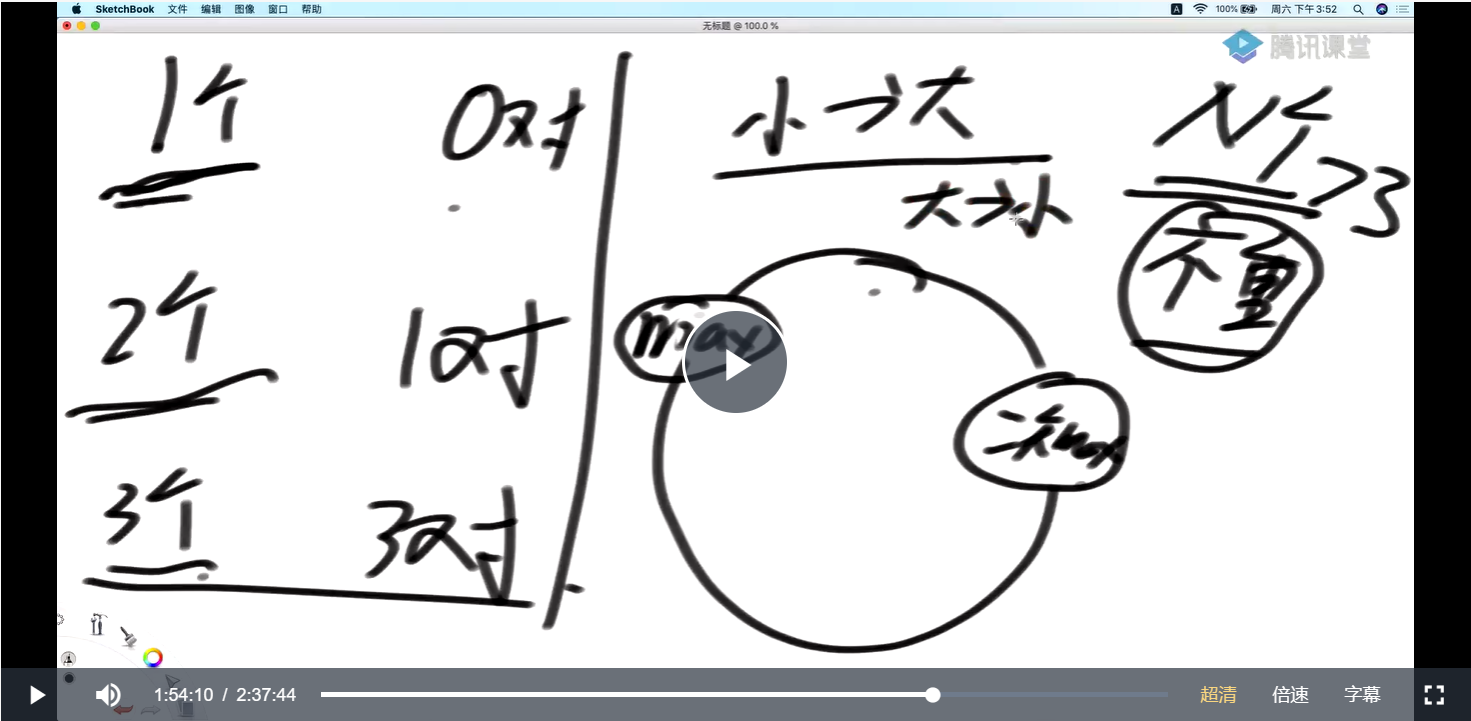 SketchBook 文件 编辑 图像 窗口 帮助
A 100% 周六 下午3:52
无标题 @ 100.0 %
腾讯课堂
1个 0对
小->大
N个 >3
大->小
不重
2个 1对
max
次max
3个 3对
1:54:10 / 2:37:44 超清 倍速 字幕